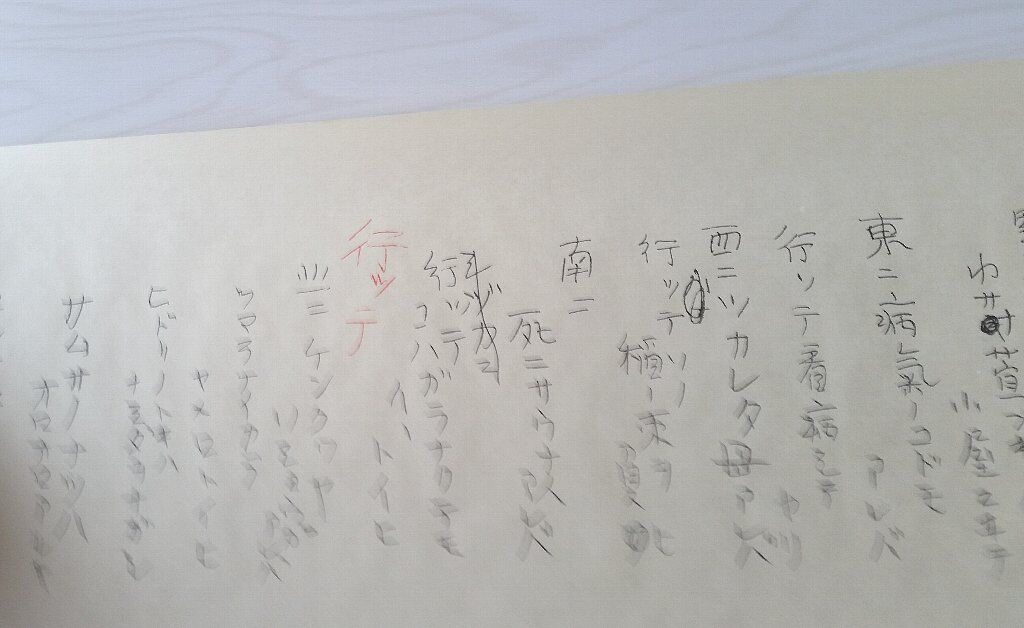 小屋ニヰテ
東ニ病氣ノコドモ
アレバ
行ッテ看病シテ
ヤリ
西ニツカレタ母アレバ
行ッテソノ
稲ノ束ヲ負ヒ
南ニ
死ニサウナ人アレバ
行ッテ
コハガラナクテモ
イヽトイヒ
行ッテ
北ニケンクヮヤ
ソショウガアレバ
ツマラナイカラ
ヤメロトイヒ
ヒドリノトキハ
ナミダヲナガシ
サムサノナツハ
オロオロアルキ